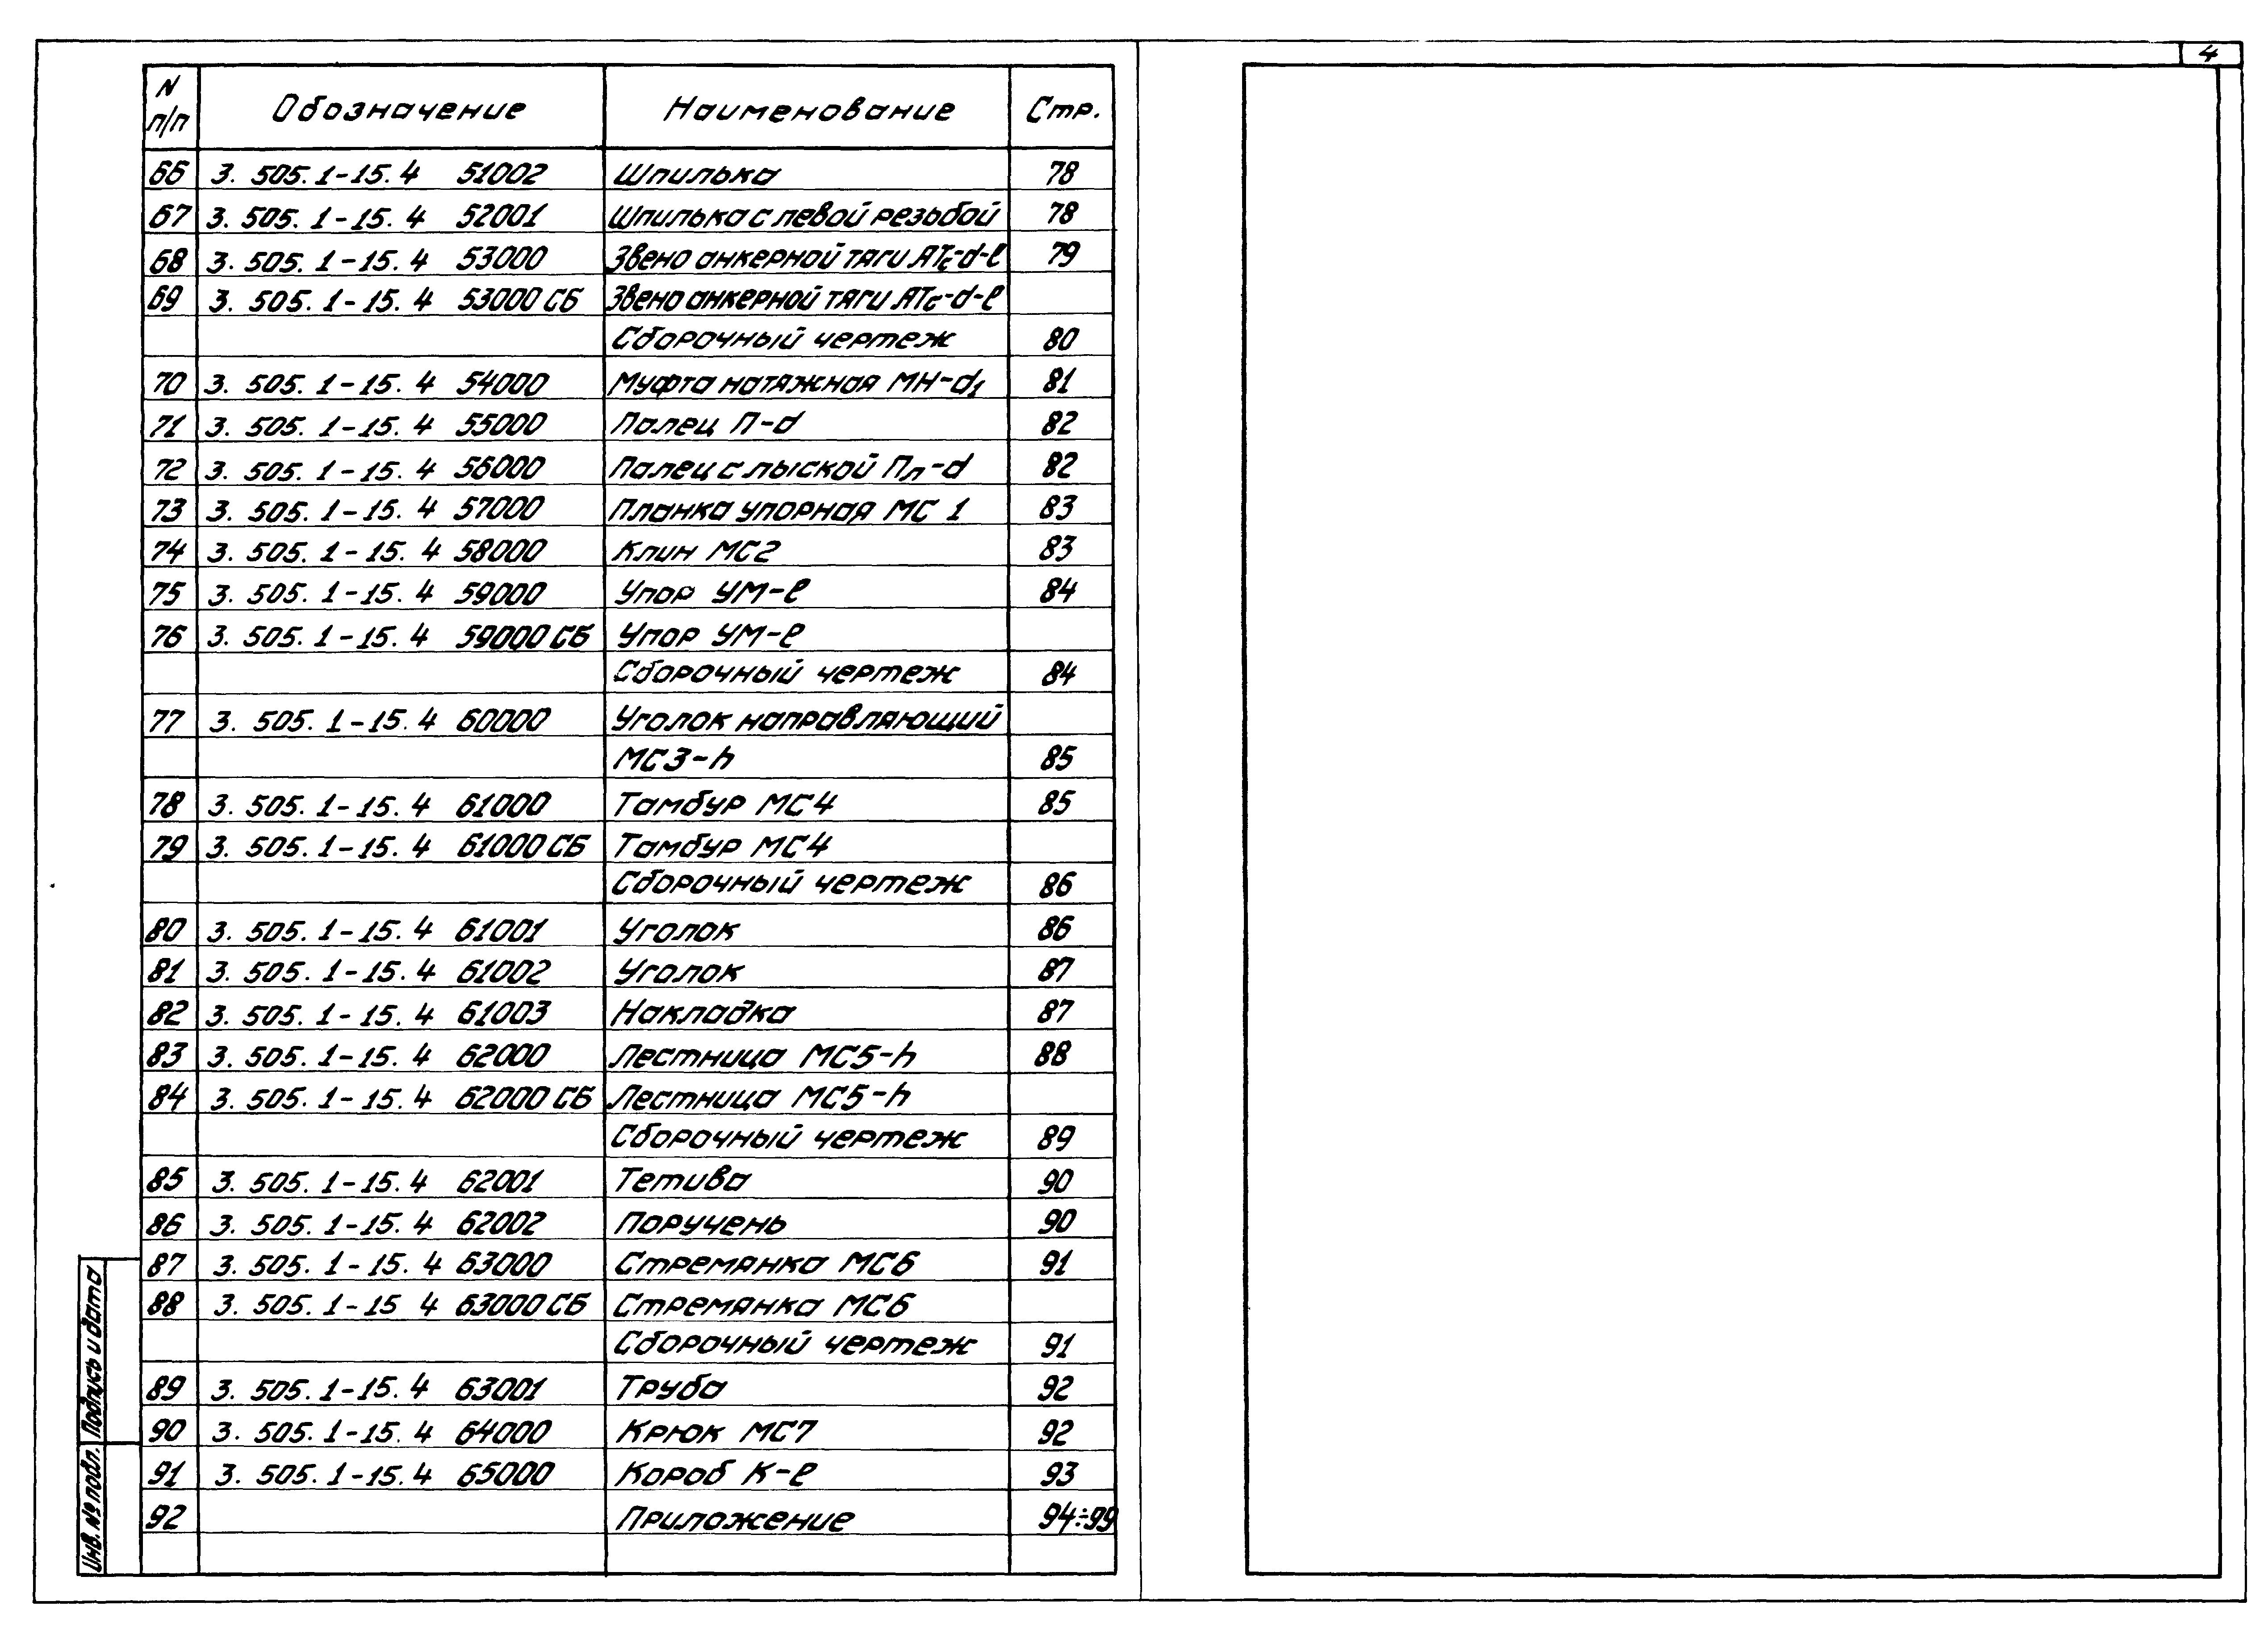 4
N п/п Обозначение Наименование Стр.
66 3.505.1-15.4 51002 Шпилька 78
67 3.505.1-15.4 52001 Шпилька с левой резьбой 78
68 3.505.1-15.4 53000 Звено анкерной тяги АТс-d-ℓ 79
69 3.505.1-15.4 53000 СБ Звено анкерной тяги АТс-d-ℓ
Сборочный чертеж 80
70 3.505.1-15.4 54000 Муфта натяжная МН-d₁ 81
71 3.505.1-15.4 55000 Палец П-d 82
72 3.505.1-15.4 56000 Палец с лыской Пл-d 82
73 3.505.1-15.4 57000 Планка упорная МС 1 83
74 3.505.1-15.4 58000 Клин МС2 83
75 3.505.1-15.4 59000 Упор УМ-ℓ 84
76 3.505.1-15.4 59000 СБ Упор УМ-ℓ
Сборочный чертеж 84
77 3.505.1-15.4 60000 Уголок направляющий
МС3-h 85
78 3.505.1-15.4 61000 Тамбур МС4 85
79 3.505.1-15.4 61000 СБ Тамбур МС4
Сборочный чертеж 86
80 3.505.1-15.4 61001 Уголок 86
81 3.505.1-15.4 61002 Уголок 87
82 3.505.1-15.4 61003 Накладка 87
83 3.505.1-15.4 62000 Лестница МС5-h 88
84 3.505.1-15.4 62000 СБ Лестница МС5-h
Сборочный чертеж 89
85 3.505.1-15.4 62001 Тетива 90
86 3.505.1-15.4 62002 Поручень 90
87 3.505.1-15.4 63000 Стремянка МС6 91
88 3.505.1-15 4 63000 СБ Стремянка МС6
Сборочный чертеж 91
89 3.505.1-15.4 63001 Труба 92
90 3.505.1-15.4 64000 Крюк МС7 92
91 3.505.1-15.4 65000 Короб К-ℓ 93
92 Приложение 94÷99
Инв. № подл. Подпись и дата